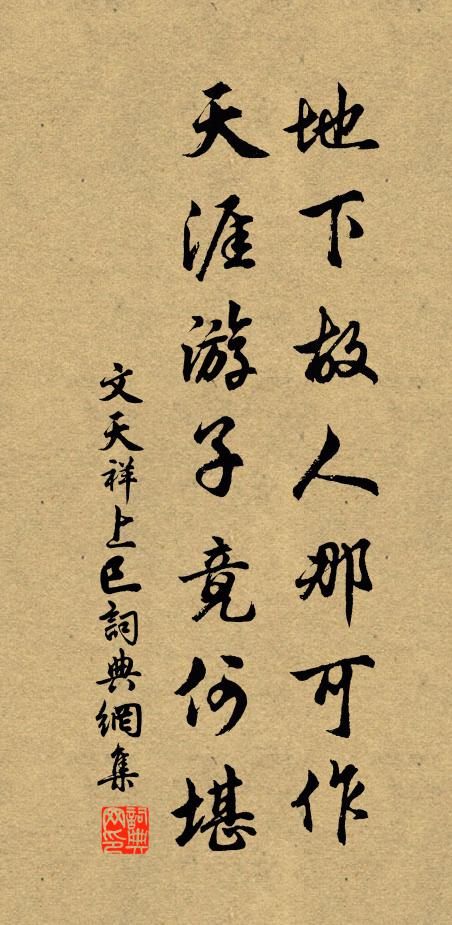 地下故人那可作
天涯游子竟何堪
文天祥上巳詞典網集
詞典
网印